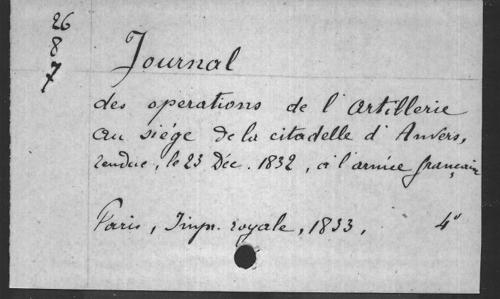 26
8
7
Journal
des operations de l'artillerie
au siége de la citadelle d'Anvers,
rendue, le 23 Déc. 1832, à l'armée française
Paris, Imp. royale, 1833, 4°